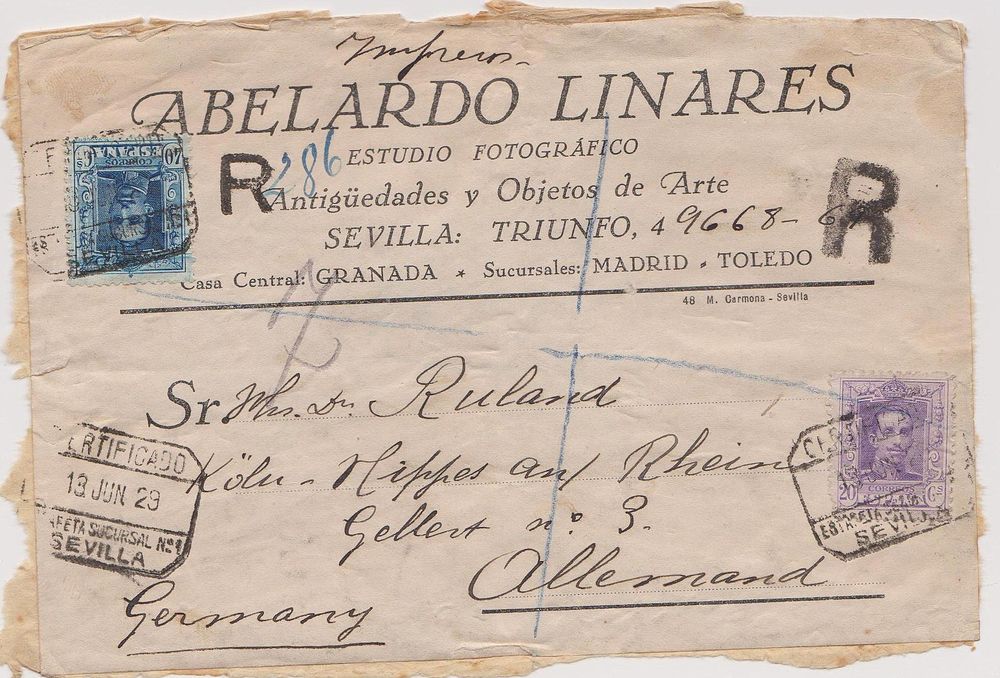 Impresos
ABELARDO LINARES
ESTUDIO FOTOGRÁFICO
R 286
Antigüedades y Objetos de Arte
R
SEVILLA: TRIUNFO, 4 9668-
Casa Central: GRANADA * Sucursales: MADRID - TOLEDO
48 M. Carmona - Sevilla
40 Cs
CORREOS
ESPAÑA
Sr. Dr. Ruland
Köln - Nippes am Rhein
Gellert nº 3.
Allemand
Germany
CERTIFICADO
13 JUN 29
ESTAFETA SUCURSAL Nº 1
SEVILLA
CORREOS
20 Cs
ESPAÑA
SEVILLA